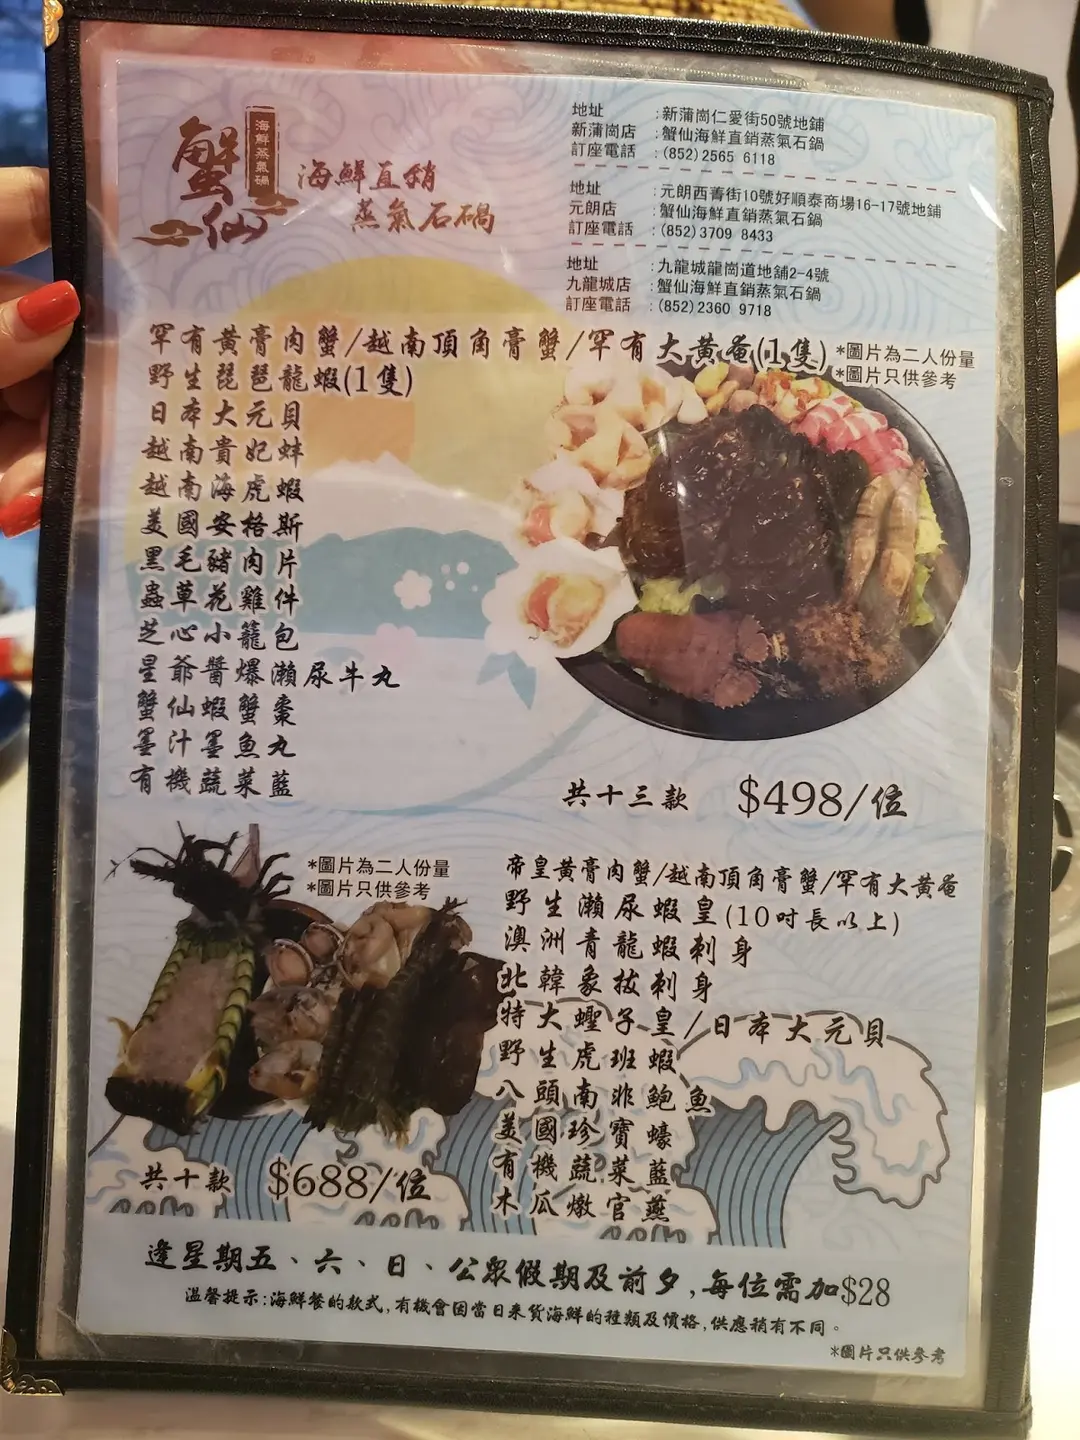 蟹仙
海鮮蒸氣鍋
海鮮直銷
蒸氣石鍋
地址 :新蒲崗仁愛街50號地鋪
新蒲崗店 :蟹仙海鮮直銷蒸氣石鍋
訂座電話 :(852)2565 6118
地址 :元朗西菁街10號好順泰商場16-17號地鋪
元朗店 :蟹仙海鮮直銷蒸氣石鍋
訂座電話 :(852)3709 8433
地址 :九龍城龍崗道地舖2-4號
九龍城店 :蟹仙海鮮直銷蒸氣石鍋
訂座電話 :(852)2360 9718
罕有黃膏肉蟹/越南頂角膏蟹/罕有大黃奄(1隻)
*圖片為二人份量
*圖片只供參考
野生琵琶龍蝦(1隻)
日本大元貝
越南貴妃蚌
越南海虎蝦
美國安格斯
黑毛豬肉片
蟲草花雞件
芝心小籠包
星爺醬爆瀨尿牛丸
蟹仙蝦蟹棗
墨汁墨魚丸
有機蔬菜藍
共十三款 $498/位
*圖片為二人份量
*圖片只供參考
帝皇黃膏肉蟹/越南頂角膏蟹/罕有大黃奄
野生瀨尿蝦皇(10吋長以上)
澳洲青龍蝦刺身
北韓象拔刺身
特大蟶子皇/日本大元貝
野生虎班蝦
八頭南非鮑魚
美國珍寶蠔
有機蔬菜藍
木瓜燉官燕
共十款 $688/位
逢星期五、六、日、公眾假期及前夕,每位需加$28
溫馨提示:海鮮餐的款式,有機會因當日來货海鮮的種類及價格,供應稍有不同。
*圖片只供參考